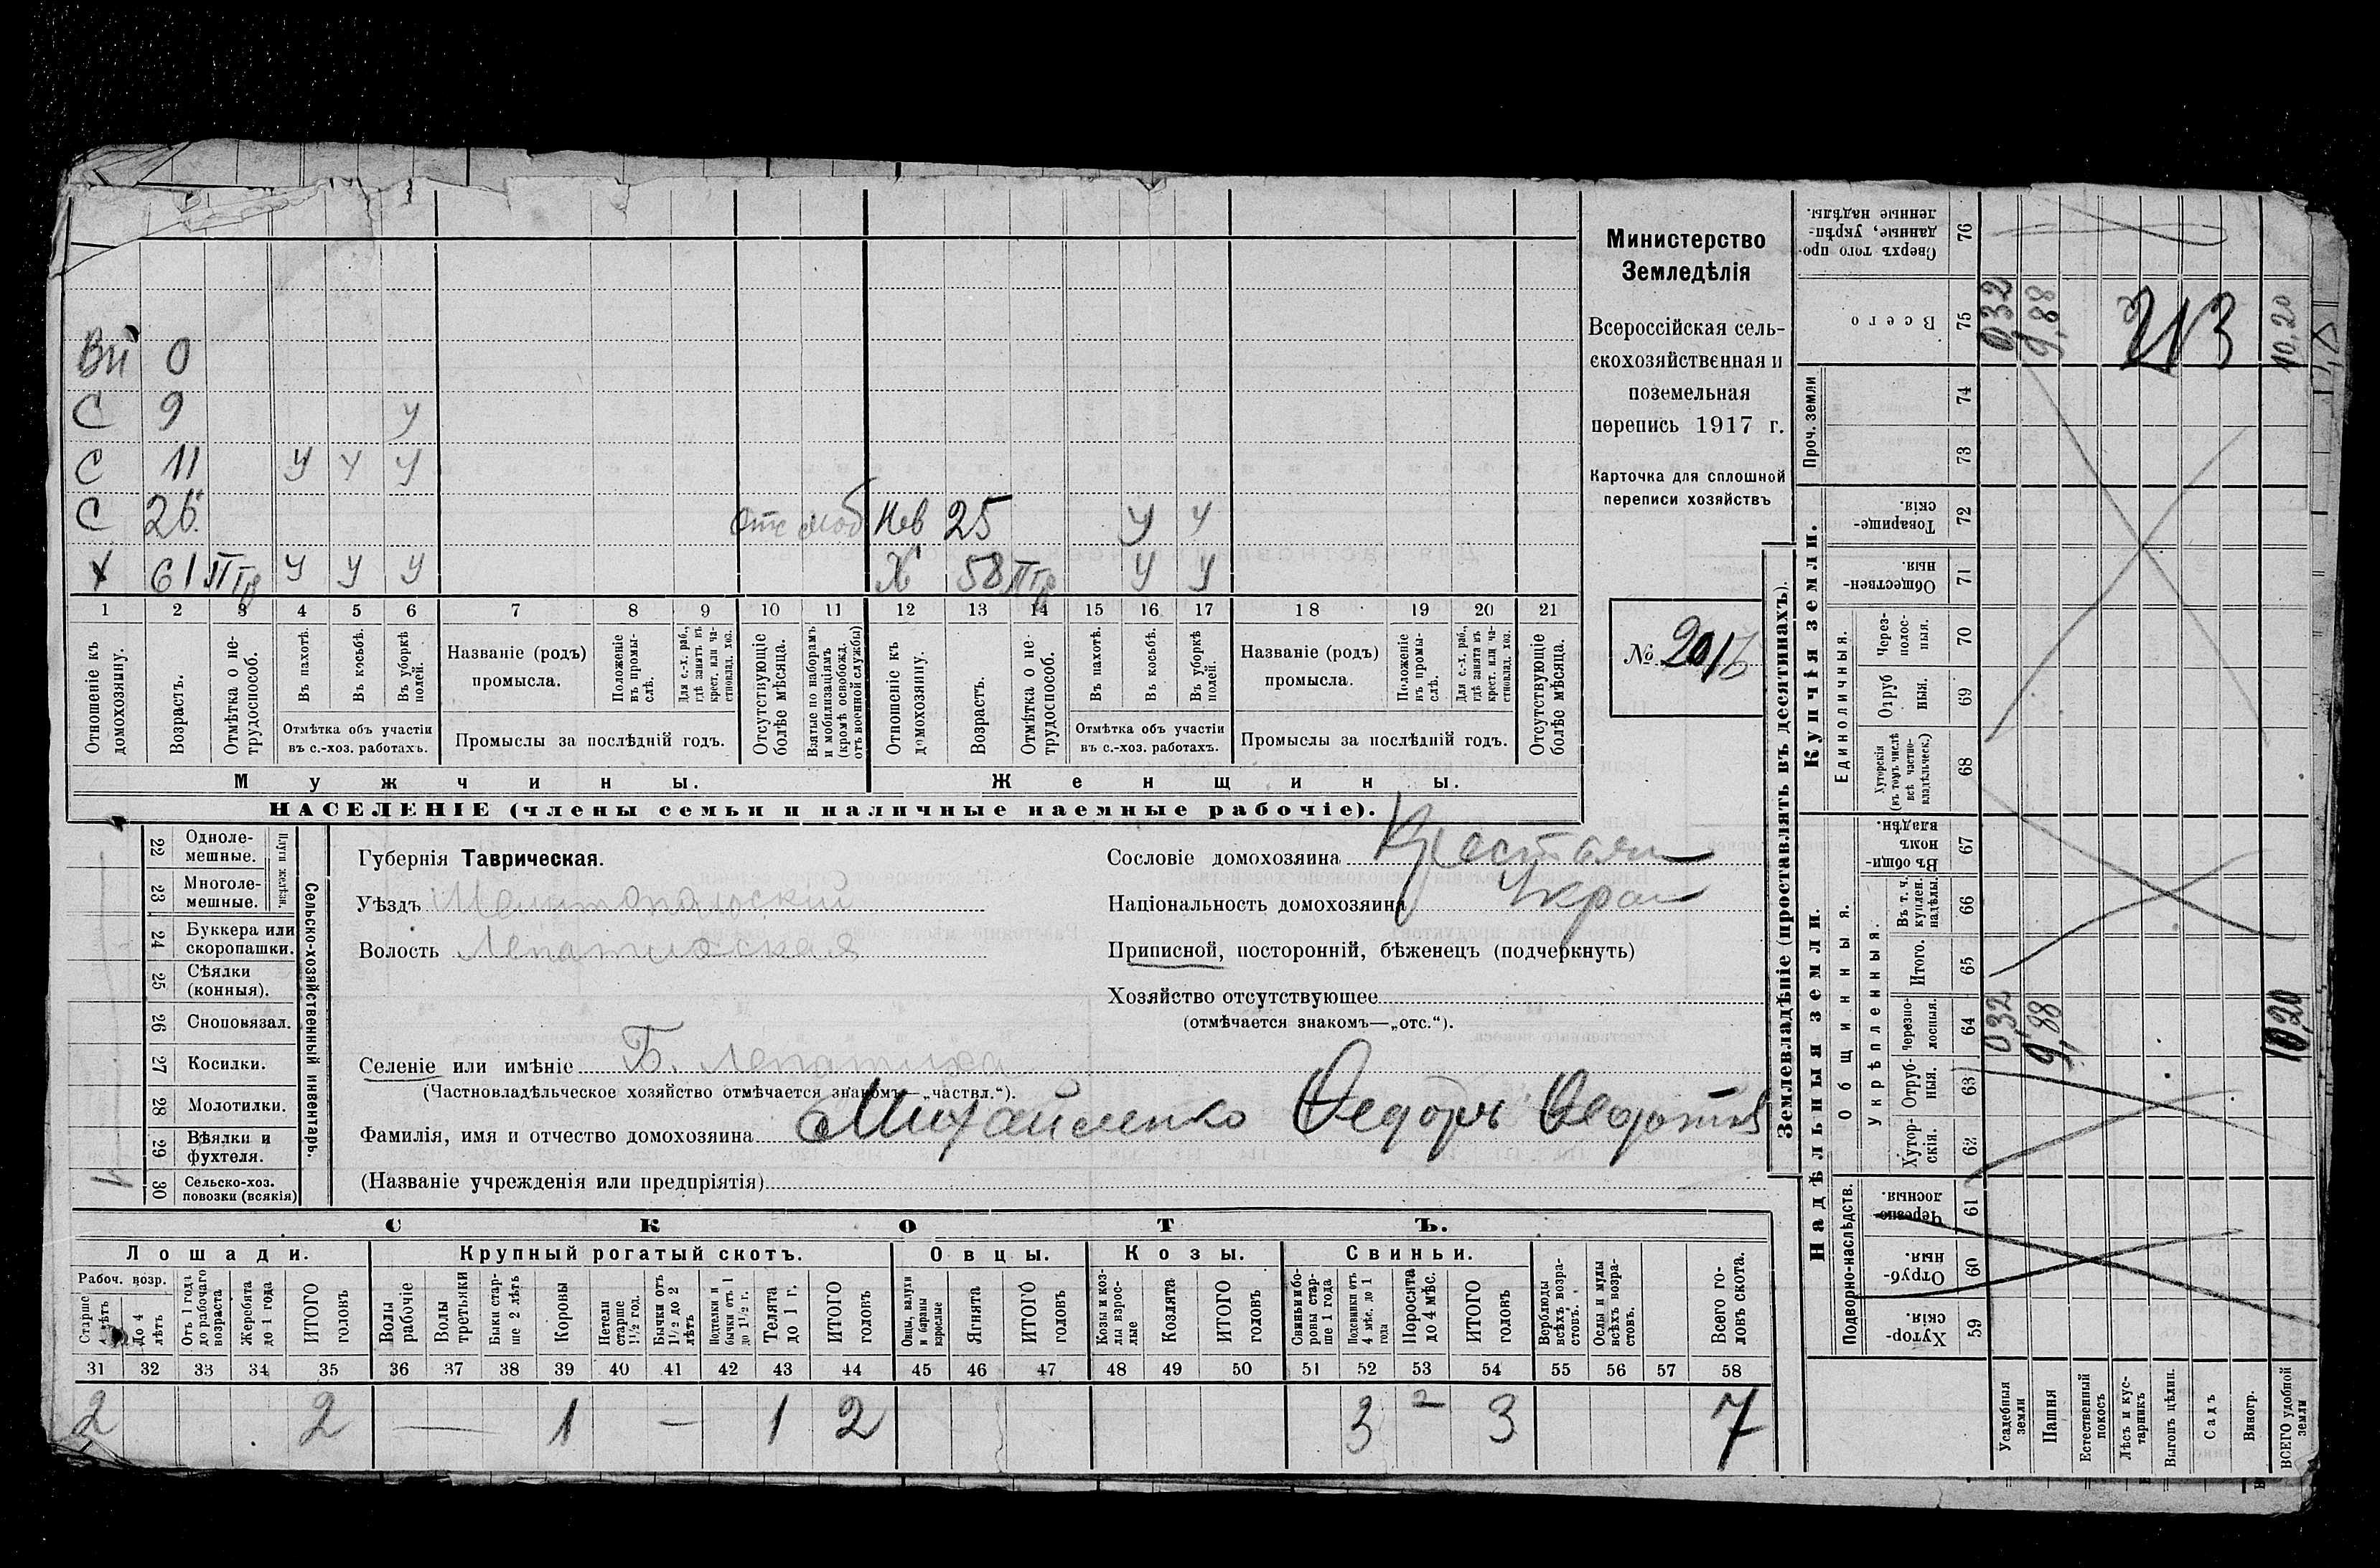 Министерство
Земледѣлія
Всероссійская сель-
скохозяйственная и
поземельная
перепись 1917 г.
Карточка для сплошной
переписи хозяйствъ
№ 201
Вн 0
С 9 у
С 11 у у у
С 26 отс моб Нев 25 у у
Х 61 у у у Х 58 у у
1 2 3 4 5 6 7 8 9 10 11 12 13 14 15 16 17 18 19 20 21
Отношеніе къ домохозяину.
Возрастъ.
Отмѣтка о не-трудоспособ.
Въ пахотѣ.
Въ косьбѣ.
Въ уборкѣ полей.
Отмѣтка объ участіи
въ с.-хоз. работахъ.
Названіе (родъ)
промысла.
Положеніе въ промы-слѣ.
Для с.-х. раб., гдѣ занятъ въ крест. или ча-стновлад. хоз.
Промыслы за послѣдній годъ.
Отсутствующіе болѣе мѣсяца.
Взятые по наборамъ и мобилизаціямъ (кромѣ освобожд. отъ военной службы)
Отношеніе къ домохозяину.
Возрастъ.
Отмѣтка о не-трудоспособ.
Въ пахотѣ.
Въ косьбѣ.
Въ уборкѣ полей.
Отмѣтка объ участіи
въ с.-хоз. работахъ.
Названіе (родъ)
промысла.
Положеніе въ промы-слѣ.
Для с.-х. раб., гдѣ занята въ крест. или ча-стновлад. хоз.
Промыслы за послѣдній годъ.
Отсутствующіе болѣе мѣсяца.
Мужчины. Женщины.
НАСЕЛЕНІЕ (члены семьи и наличные наемные рабочіе).
Сельско-хозяйственный инвентарь.
Плуги желѣзн.
22 Одноле-мешные.
23 Многоле-мешные.
24 Буккера или скоропашки.
25 Сѣялки (конныя).
26 Сноповязал.
27 Косилки.
28 Молотилки.
29 Вѣялки и фухтеля.
30 Сельско-хоз. повозки (всякія)
Губернія Таврическая.
Уѣздъ Мелитопольскій
Волость Лепатихская
Селеніе или имѣніе Б. Лепатиха
(Частновладѣльческое хозяйство отмѣчается знакомъ—„частвл.“).
Фамилія, имя и отчество домохозяина Михайленко Федоръ Федотов
(Названіе учрежденія или предпріятія)
Сословіе домохозяина Крестьян
Національность домохозяина Украи
Приписной, посторонній, бѣженецъ (подчеркнуть)
Хозяйство отсутствующее
(отмѣчается знакомъ—„отс.“).
СКОТЪ.
Лошади. Крупный рогатый скотъ. Овцы. Козы. Свиньи.
Рабоч. возр.
Старше 4 лѣтъ
До 4 лѣтъ
Отъ 1 года до рабочаго возраста
Жеребята до 1 года
ИТОГО головъ
Волы рабочіе
Волы третьяки
Быки стар-ше 2 лѣтъ
Коровы
Нетели старше 1½ год.
Бычки отъ 1½ до 2 лѣтъ
Нетелки и бычки отъ 1 до 1½ г.
Телята до 1 г.
ИТОГО головъ
Овцы, валухи и бараны взрослые
Ягнята
ИТОГО головъ
Козы и коз-лы взрос-лые
Козлята
ИТОГО головъ
Свиньи и бо-ровы стар-ше 1 года
Подсвинки отъ 4 мѣс. до 1 года
Поросята до 4 мѣс.
ИТОГО головъ
Верблюды всѣхъ возра-стовъ.
Ослы и мулы всѣхъ возра-стовъ.
Всего го-ловъ скота.
31 32 33 34 35 36 37 38 39 40 41 42 43 44 45 46 47 48 49 50 51 52 53 54 55 56 57 58
2 2 — 1 — 1 2 3 2 3 7
Землевладѣніе (проставлять въ десятинахъ).
Надѣльныя земли. Купчія земли. Проч. земли
Подворно-наслѣдств.
Общинныя.
Укрѣпленныя.
Единоличныя.
Хутор-скія. 59
Отруб-ныя. 60
Черезпо-лосныя. 61
Хутор-скія. 62
Отруб-ныя. 63
Черезпо-лосныя. 64
Итого. 65
Въ т. ч. куплен. надѣлы. 66
Въ общи-номъ владѣн. 67
Хуторскія (въ томъ числѣ всѣ частно-владѣльческ.) 68
Отруб ныя. 69
Через-полос-ныя. 70
Обществен-ныя. 71
Товарище-скія. 72
73
74
Всего 75
Сверхъ того про-данные, укрѣп-ленные надѣлы. 76
Усадебныя земли 0,32 0,32
Пашня 9,88 9,88
Естественный покосъ
Лѣсъ и кус-тарникъ
Выгонъ цѣлин.
Садъ
Виногр.
ВСЕГО удобной земли 10,20 10,20
213